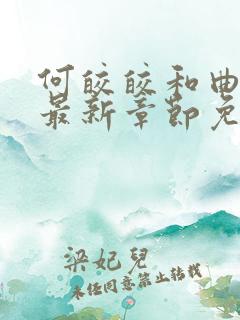 何皎皎和曲
最新章节免
梁妃儿
未经同意禁止转载